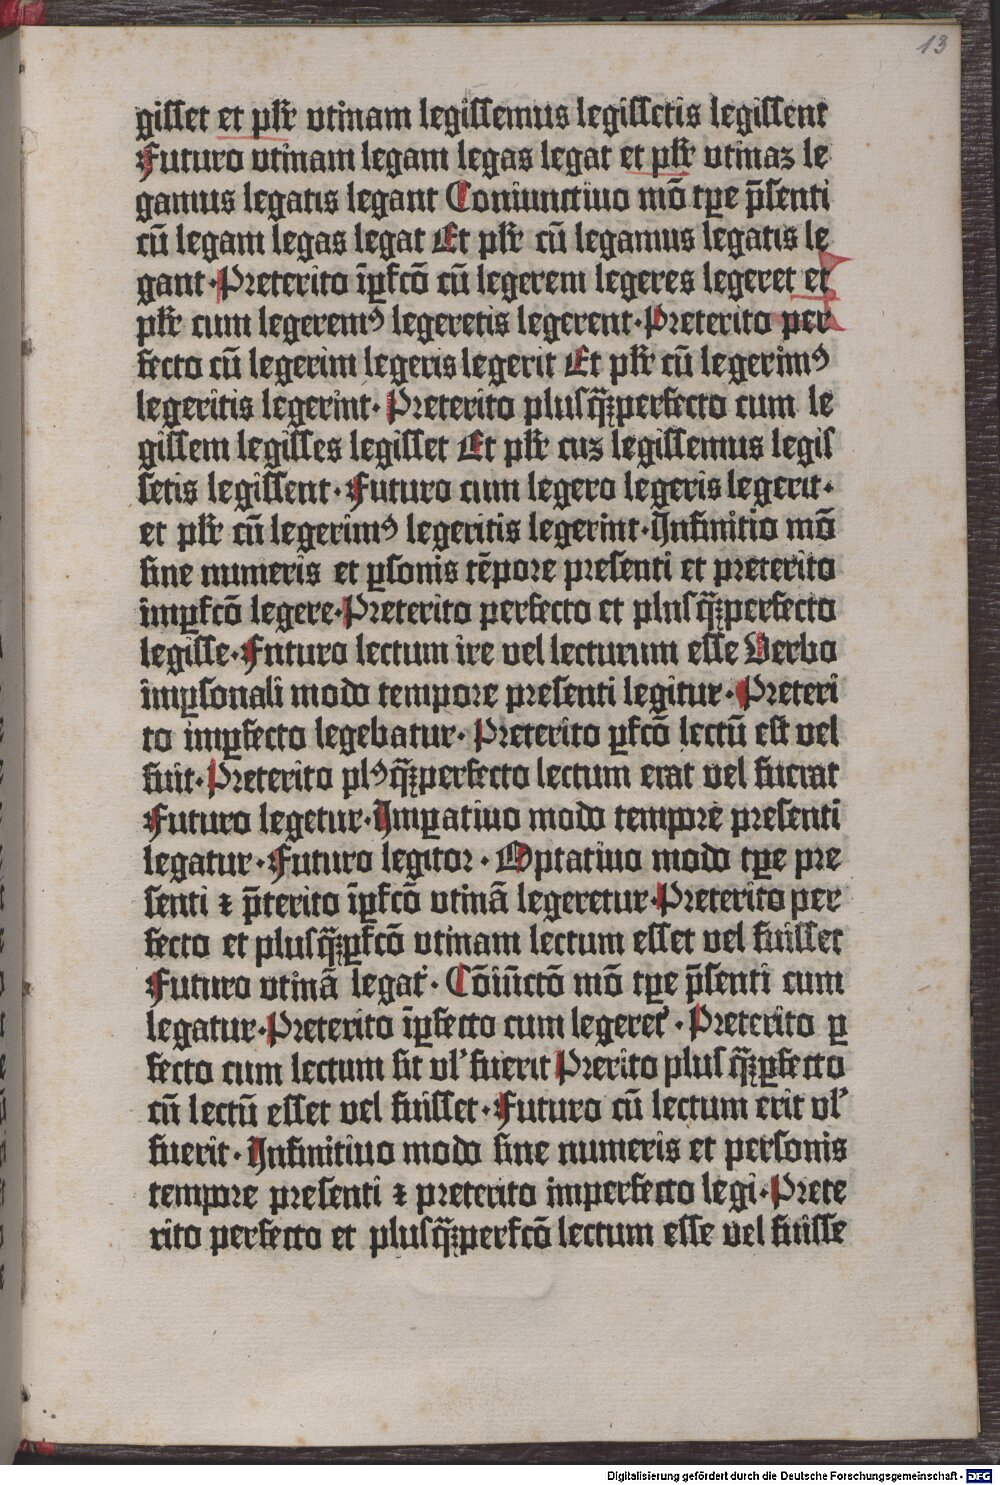 13
gisset et plr̃ vtinam legissemus legissetis legissent
Futuro vtinam legam legas legat et plr̃ vtinaz le
gamus legatis legant Coniunctiuo mõ tꝑe p̃senti
cũ legam legas legat Et plr̃ cũ legamus legatis le
gant·Preterito ĩꝑfcõ cũ legerem legeres legeret et
plr̃ cum legeremꝰ legeretis legerent·Preterito per
fecto cũ legerim legeris legerit Et plr̃ cũ legerimꝰ
legeritis legerint· Preterito plusq̃ꝫperfecto cum le
gissem legisses legisset Et plr̃ cuz legissemus legis
setis legissent·Futuro cum legero legeris legerit·
et plr̃ cũ legerimꝰ legeritis legerint·Infinitio mõ
sine numeris et ꝑsonis tẽpore presenti et preterito
imꝑfcõ legere·Preterito perfecto et plusq̃ꝫperfecto
legisse·Futuro lectum ire vel lecturum esse Verbo
imꝑsonali modo tempore presenti legitur·Preteri
to imꝑfecto legebatur·Preterito ꝑfcõ lectũ est vel
fuit·Preterito plꝰq̃ꝫperfecto lectum erat vel fuerat
Futuro legetur·Imꝑatiuo modo tempore presenti
legatur·Futuro legitor·Optatiuo modo tꝑe pre
senti ⁊ p̃terito ĩꝑfcõ vtinã legeretur·Preterito per
fecto et plusq̃ꝫꝑfcõ vtinam lectum esset vel fuisset
Futuro vtinã legat᷑· Cõiũctõ mõ tꝑe p̃senti cum
legatur·Preterito ĩꝑfecto cum legeret᷑·Preterito ꝑ
fecto cum lectum sit vl’ fuerit Prerito plusq̃ꝫꝑfecto
cũ lectũ esset vel fuisset·Futuro cũ lectum erit vl’
fuerit·Infinitiuo modo sine numeris et personis
tempore presenti ⁊ preterito imperfecto legi·Prete
rito perfecto et plusq̃ꝫperfcõ lectum esse vel fuisse
Digitalisierung gefördert durch die Deutsche Forschungsgemeinschaft - DFG